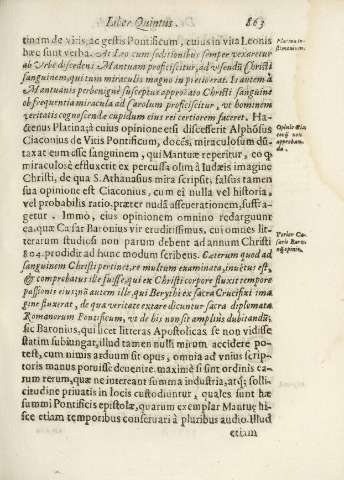 Liber Quintus. 863
tinam de vitis, ac gestis Pontificum, cuius in vita Leonis
hæc sunt verba. At Leo cum seditionibus semper vexaretur
ab Vrbe discedens Mantuam proficiscitur, ad visendũ Christi
sanguinem, qui tum miraculis magno in pretio erat. Is autem à
Mantuanis perbenignè susceptus approbato Christi sanguine
ob frequentia miracula ad Carolum proficiscitur, vt hominem
veritatis cognoscendæ cupidum eius rei certiorem faceret. Ha-
ctenus Platina; à cuius opinione etsi discesserit Alphõsus
Ciaconius de Vitis Pontificum, docẽs, miraculosum dũ-
taxat eum esse sanguinem, qui Mantuæ reperitur, eo ꝙ
miraculosè effluxerit ex percussa olim à Iudæis imagine
Christi, de qua S. Athanasius mira scripsit; falsas tamen
sua opinione est Ciaconius, cum ei nulla vel historia,
vel probabilis ratio, præter nudã asseuerationem, suffra-
getur. Immò, eius opinionem omnino redarguunt
ea, quæ Cæsar Baronius vir eruditissimus, cui omnes lit-
terarum studiosi non parum debent ad annum Christi
804. prodidit ad hunc modum scribens. Cæterum quod ad
sanguinem Christi pertinet, re multum examinata, inuẽtus est,
& comprobatus ille fuisse, qui ex Christi corpore fluxit tempore
passionis eius; nõ autem ille, qui Berythi ex sacra Crucifixi ima
gine fluxerat, de qua veritate extare dicuntur sacra diplomata
Romanorum Pontificum, vt de his non sit ampliùs dubitandũ,
sic Baronius, qui licet litteras Apostolicas se non vidisse
statim subiungat, illud tamen nulli mirum accidere po-
test, cum nimis arduum sit opus, omnia ad vnius scrip-
toris manus potuisse deuenire. maximè si sint ordinis ea-
rum rerum, quæ ne intereant summa industria, atq; solli-
citudine priuatis in locis custodiuntur, quales sunt hæ
summi Pontificis epistolæ, quarum exemplar Mantuę hi-
sce etiam temporibus conseruari à pluribus audio. Illud
etiam
Platina in-
Opinio Cia
conij non
approban-
da.
Cæ-
saris Baro-
nij opinio.